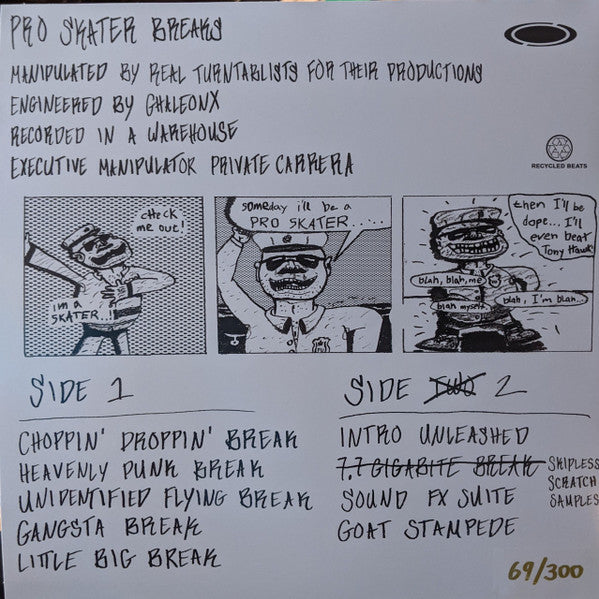 PRO SKATER BREAKS
MANIPULATED BY REAL TURNTABLISTS FOR THEIR PRODUCTIONS
ENGINEERED BY GHALEONX
RECORDED IN A WAREHOUSE
EXECUTIVE MANIPULATOR PRIVATE CARRERA
RECYCLED BEATS
check
me out!
i'm a
SKATER..!
someday i'll be a
PRO SKATER.....
then I'll be
dope... I'll
even beat
Tony Hawk
blah, blah, me
blah, I'm blah...
blah myself
SIDE 1
CHOPPIN' DROPPIN' BREAK
HEAVENLY PUNK BREAK
UNIDENTIFIED FLYING BREAK
GANGSTA BREAK
LITTLE BIG BREAK
SIDE TWO 2
INTRO UNLEASHED
7.7 GIGABITE BREAK
SKIPLESS
SCRATCH
SAMPLES
SOUND FX SUITE
GOAT STAMPEDE
69/300